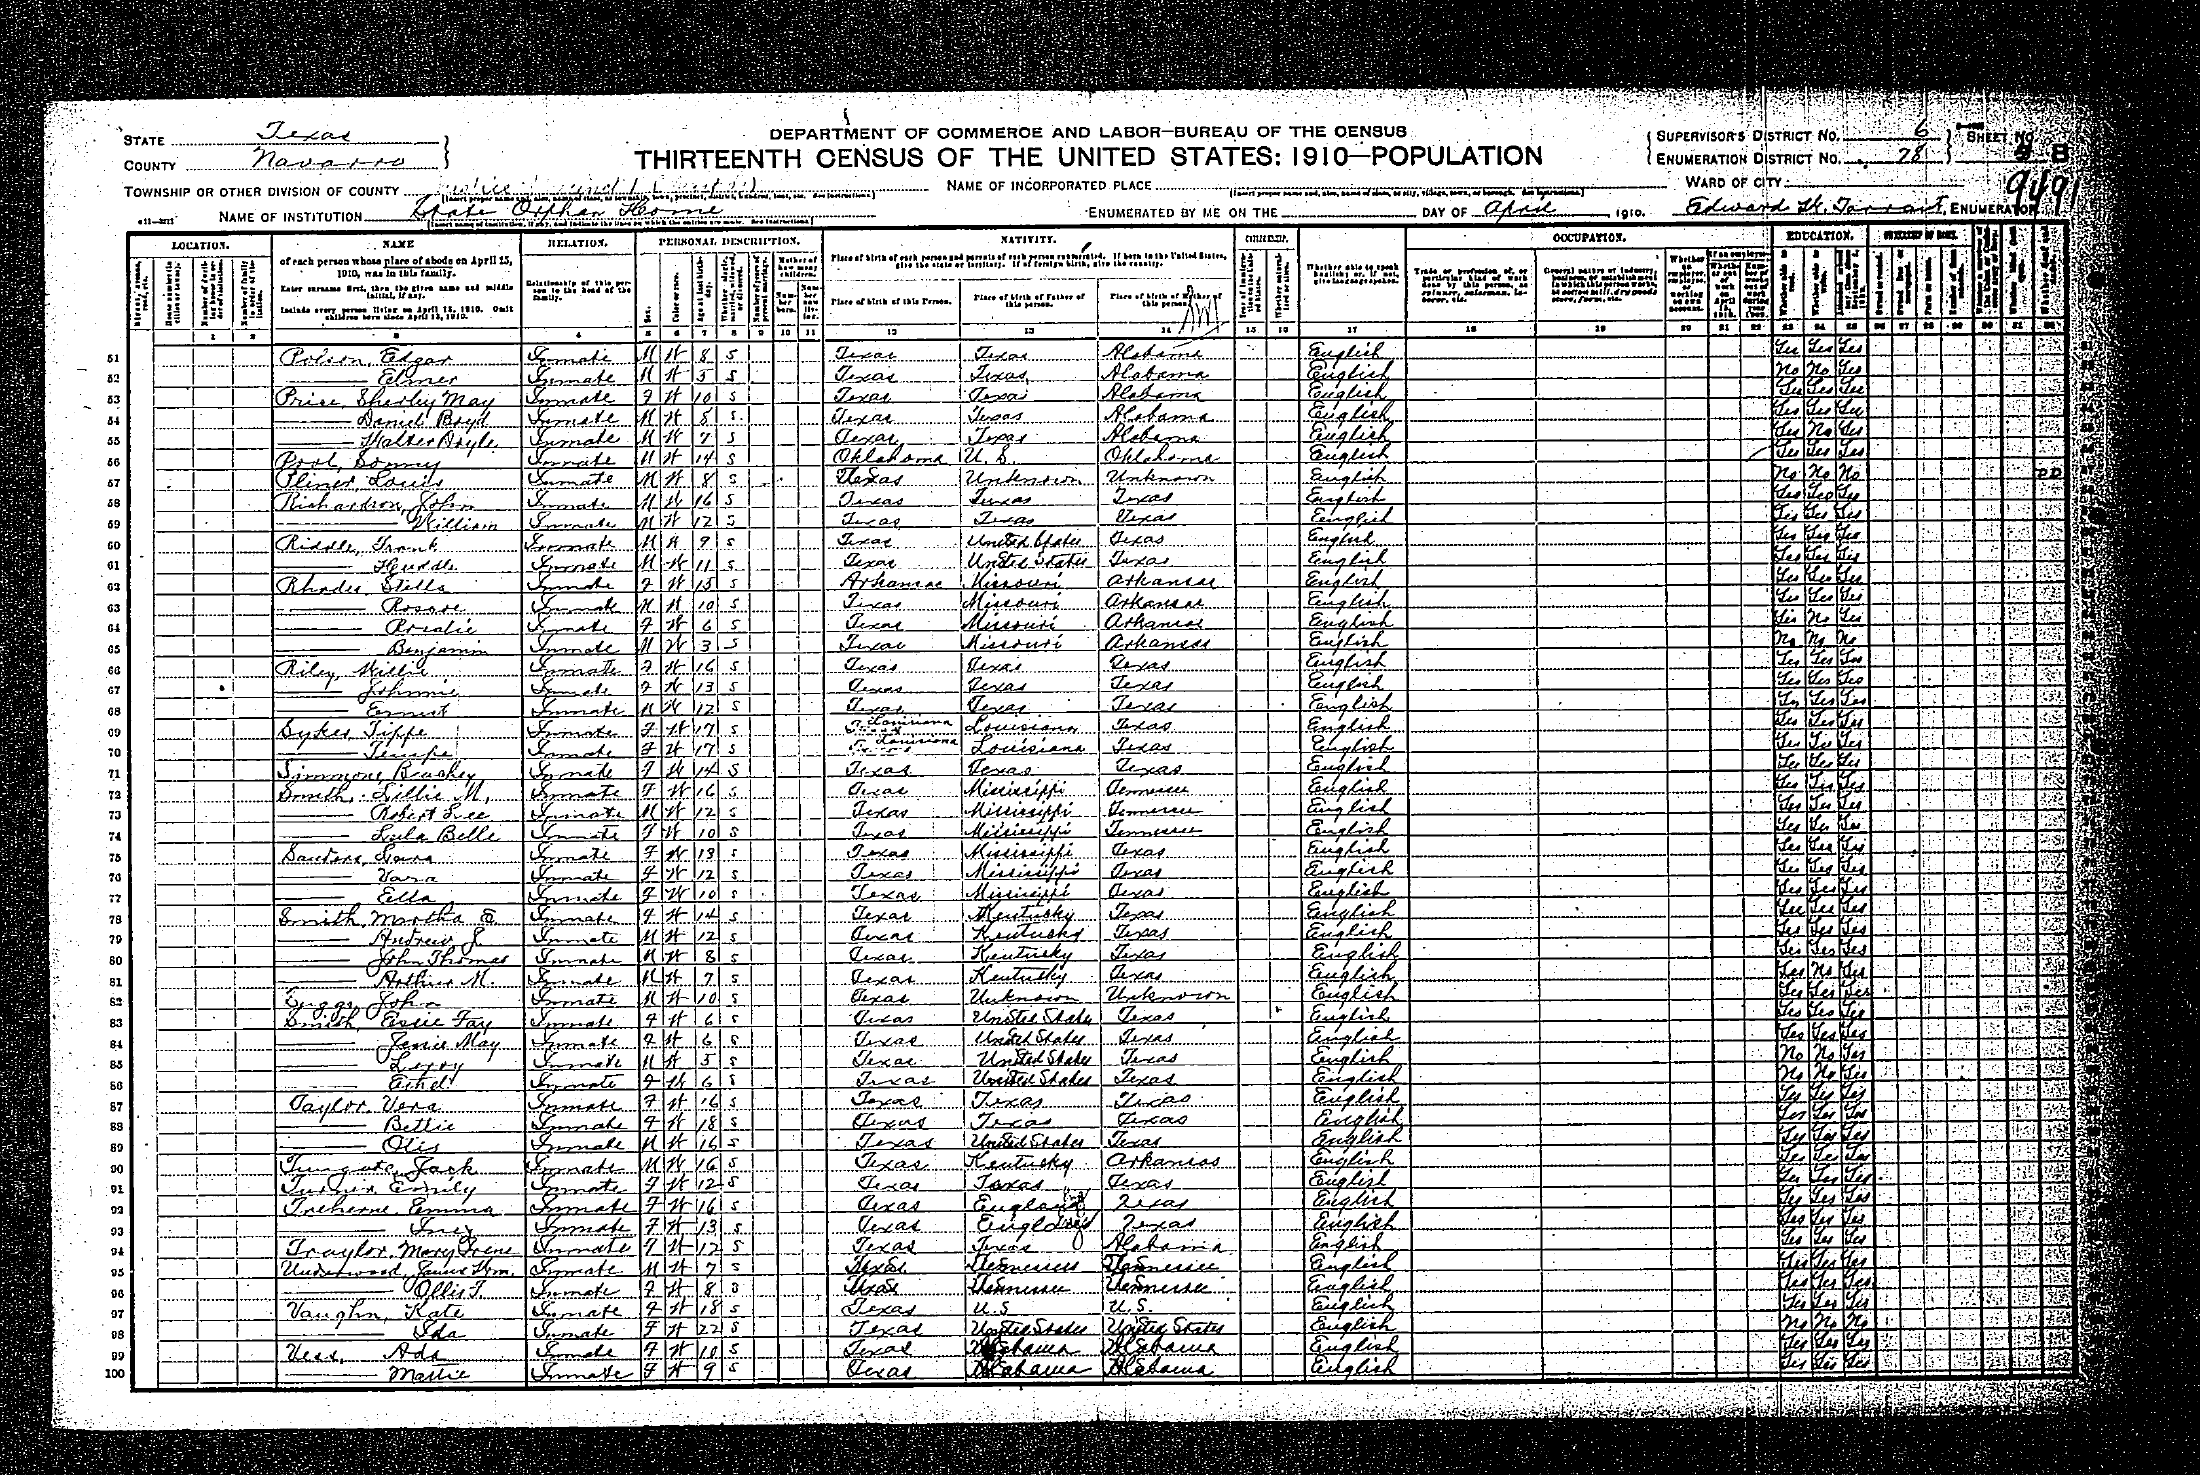 DEPARTMENT OF COMMERCE AND LABOR—BUREAU OF THE CENSUS
THIRTEENTH CENSUS OF THE UNITED STATES: 1910—POPULATION
STATE Texas
COUNTY Navarro
TOWNSHIP OR OTHER DIVISION OF COUNTY
NAME OF INSTITUTION State Orphan Home
NAME OF INCORPORATED PLACE
ENUMERATED BY ME ON THE DAY OF April 1910.
SUPERVISOR'S DISTRICT No. 6
ENUMERATION DISTRICT No. 78
SHEET No. 8 B
WARD OF CITY
9491
Edward H. Tarrant, ENUMERATOR
LOCATION. NAME RELATION. PERSONAL DESCRIPTION. NATIVITY. OCCUPATION. EDUCATION.
of each person whose place of abode on April 15, 1910, was in this family.
Enter surname first, then the given name and middle initial, if any.
Include every person living on April 15, 1910. Omit children born since April 15, 1910.
Relationship of this person to the head of the family.
Place of birth of each person and parents of each person enumerated. If born in the United States, give the state or territory. If of foreign birth, give the country.
Place of birth of this Person. Place of birth of Father of this person. Place of birth of Mother of this person.
Whether able to speak English; or, if not, give language spoken.
51 Polson, Edgar Inmate M W 8 S Texas Texas Alabama English Yes Yes Yes
52 Elmer Inmate M W 5 S Texas Texas Alabama English No No Yes
53 Price, Sherley May Inmate F W 10 S Texas Texas Alabama English Yes Yes Yes
54 Daniel Boyd Inmate M W 8 S Texas Texas Alabama English Yes Yes Yes
55 Walter Doyle Inmate M W 7 S Texas Texas Alabama English Yes No Yes
56 Pool, Sonny Inmate M W 14 S Oklahoma U. S. Oklahoma English Yes Yes Yes
57 Pliner, Louis Inmate M W 8 S Texas Unknown Unknown English No No No DD
58 Richardson, John Inmate M W 16 S Texas Texas Texas English Yes Yes Yes
59 William Inmate M W 12 S Texas Texas Texas English Yes Yes Yes
60 Riddle, Frank Inmate M W 9 S Texas United States Texas English Yes Yes Yes
61 Huddle Inmate M W 11 S Texas United States Texas English Yes Yes Yes
62 Rhodes, Stella Inmate F W 15 S Arkansas Missouri Arkansas English Yes Yes Yes
63 Roscoe Inmate M W 10 S Texas Missouri Arkansas English Yes Yes Yes
64 Rosalie Inmate F W 6 S Texas Missouri Arkansas English Yes No Yes
65 Benjamin Inmate M W 3 S Texas Missouri Arkansas English No No No
66 Riley, Willie Inmate F W 16 S Texas Texas Texas English Yes Yes Yes
67 Johnnie Inmate F W 13 S Texas Texas Texas English Yes Yes Yes
68 Ernest Inmate M W 12 S Texas Texas Texas English Yes Yes Yes
69 Sykes, Tippe Inmate F W 17 S Louisiana Louisiana Texas English Yes Yes Yes
70 Tempe Inmate F W 17 S Louisiana Louisiana Texas English Yes Yes Yes
71 Simmons, Beachey Inmate F W 14 S Texas Texas Texas English Yes Yes Yes
72 Smith, Lillie M. Inmate F W 16 S Texas Mississippi Tennessee English Yes Yes Yes
73 Robert Lee Inmate M W 12 S Texas Mississippi Tennessee English Yes Yes Yes
74 Lula Belle Inmate F W 10 S Texas Mississippi Tennessee English Yes Yes Yes
75 Sanders, Inmate F W 13 S Texas Mississippi Texas English Yes Yes Yes
76 Vera Inmate F W 12 S Texas Mississippi Texas English Yes Yes Yes
77 Ella Inmate F W 10 S Texas Mississippi Texas English Yes Yes Yes
78 Smith, Martha E Inmate F W 14 S Texas Kentucky Texas English Yes Yes Yes
79 Andrew J. Inmate M W 12 S Texas Kentucky Texas English Yes Yes Yes
80 John Thomas Inmate M W 8 S Texas Kentucky Texas English Yes Yes Yes
81 Arthur M. Inmate M W 7 S Texas Kentucky Texas English Yes No Yes
82 Suggs, John Inmate M W 10 S Texas Unknown Unknown English Yes Yes Yes
83 Smith, Essie Fay Inmate F W 6 S Texas United States Texas English Yes Yes Yes
84 Jessie May Inmate F W 6 S Texas United States Texas English Yes Yes Yes
85 Leroy Inmate M W 5 S Texas United States Texas English No No Yes
86 Ethel Inmate F W 6 S Texas United States Texas English No No Yes
87 Taylor, Vera Inmate F W 16 S Texas Texas Texas English Yes Yes Yes
88 Bettie Inmate F W 18 S Texas Texas Texas English Yes Yes Yes
89 Otis Inmate M W 16 S Texas United States Texas English Yes Yes Yes
90 Jack Inmate M W 16 S Texas Kentucky Arkansas English Yes Yes Yes
91 Turner, Emily Inmate F W 12 S Texas Texas Texas English Yes Yes Yes
92 Treherne, Emma Inmate F W 16 S Texas England Texas English Yes Yes Yes
93 Inez Inmate F W 13 S Texas England Texas English Yes Yes Yes
94 Traylor, Mary Irene Inmate F W 12 S Texas Texas Alabama English Yes Yes Yes
95 Underwood, James Wm. Inmate M W 7 S Texas Tennessee Tennessee English Yes Yes Yes
96 Ollis T. Inmate F W 8 S Texas Tennessee Tennessee English Yes Yes Yes
97 Vaughn, Kate Inmate F W 18 S Texas U.S. U.S. English Yes Yes Yes
98 Ida Inmate F W 22 S Texas United States United States English No No No
99 Vess, Ada Inmate F W 10 S Texas Alabama Alabama English Yes Yes Yes
100 Mattie Inmate F W 9 S Texas Alabama Alabama English Yes Yes Yes